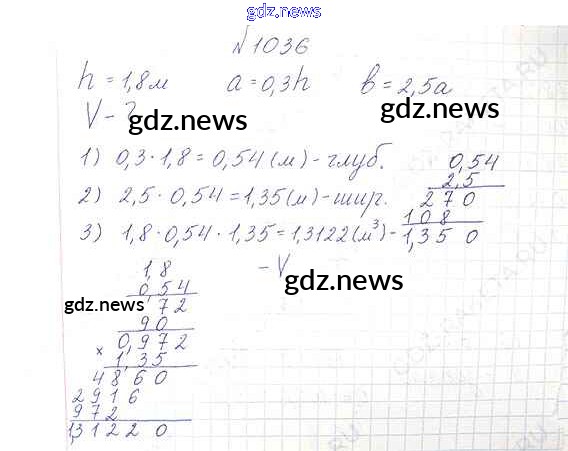 gdz.news
№1036
h = 1,8м a = 0,3h b = 2,5a
V - ?
gdz.news
gdz.news
1) 0,3 · 1,8 = 0,54 (м) - глуб.
2) 2,5 · 0,54 = 1,35 (м) - шир.
3) 1,8 · 0,54 · 1,35 = 1,3122 (м³) -
- V
0,54
2,5
270
108
1,350
gdz.news
1,8
0,54
72
90
0,972
× 1,35
4860
2916
972
1,31220
gdz.news